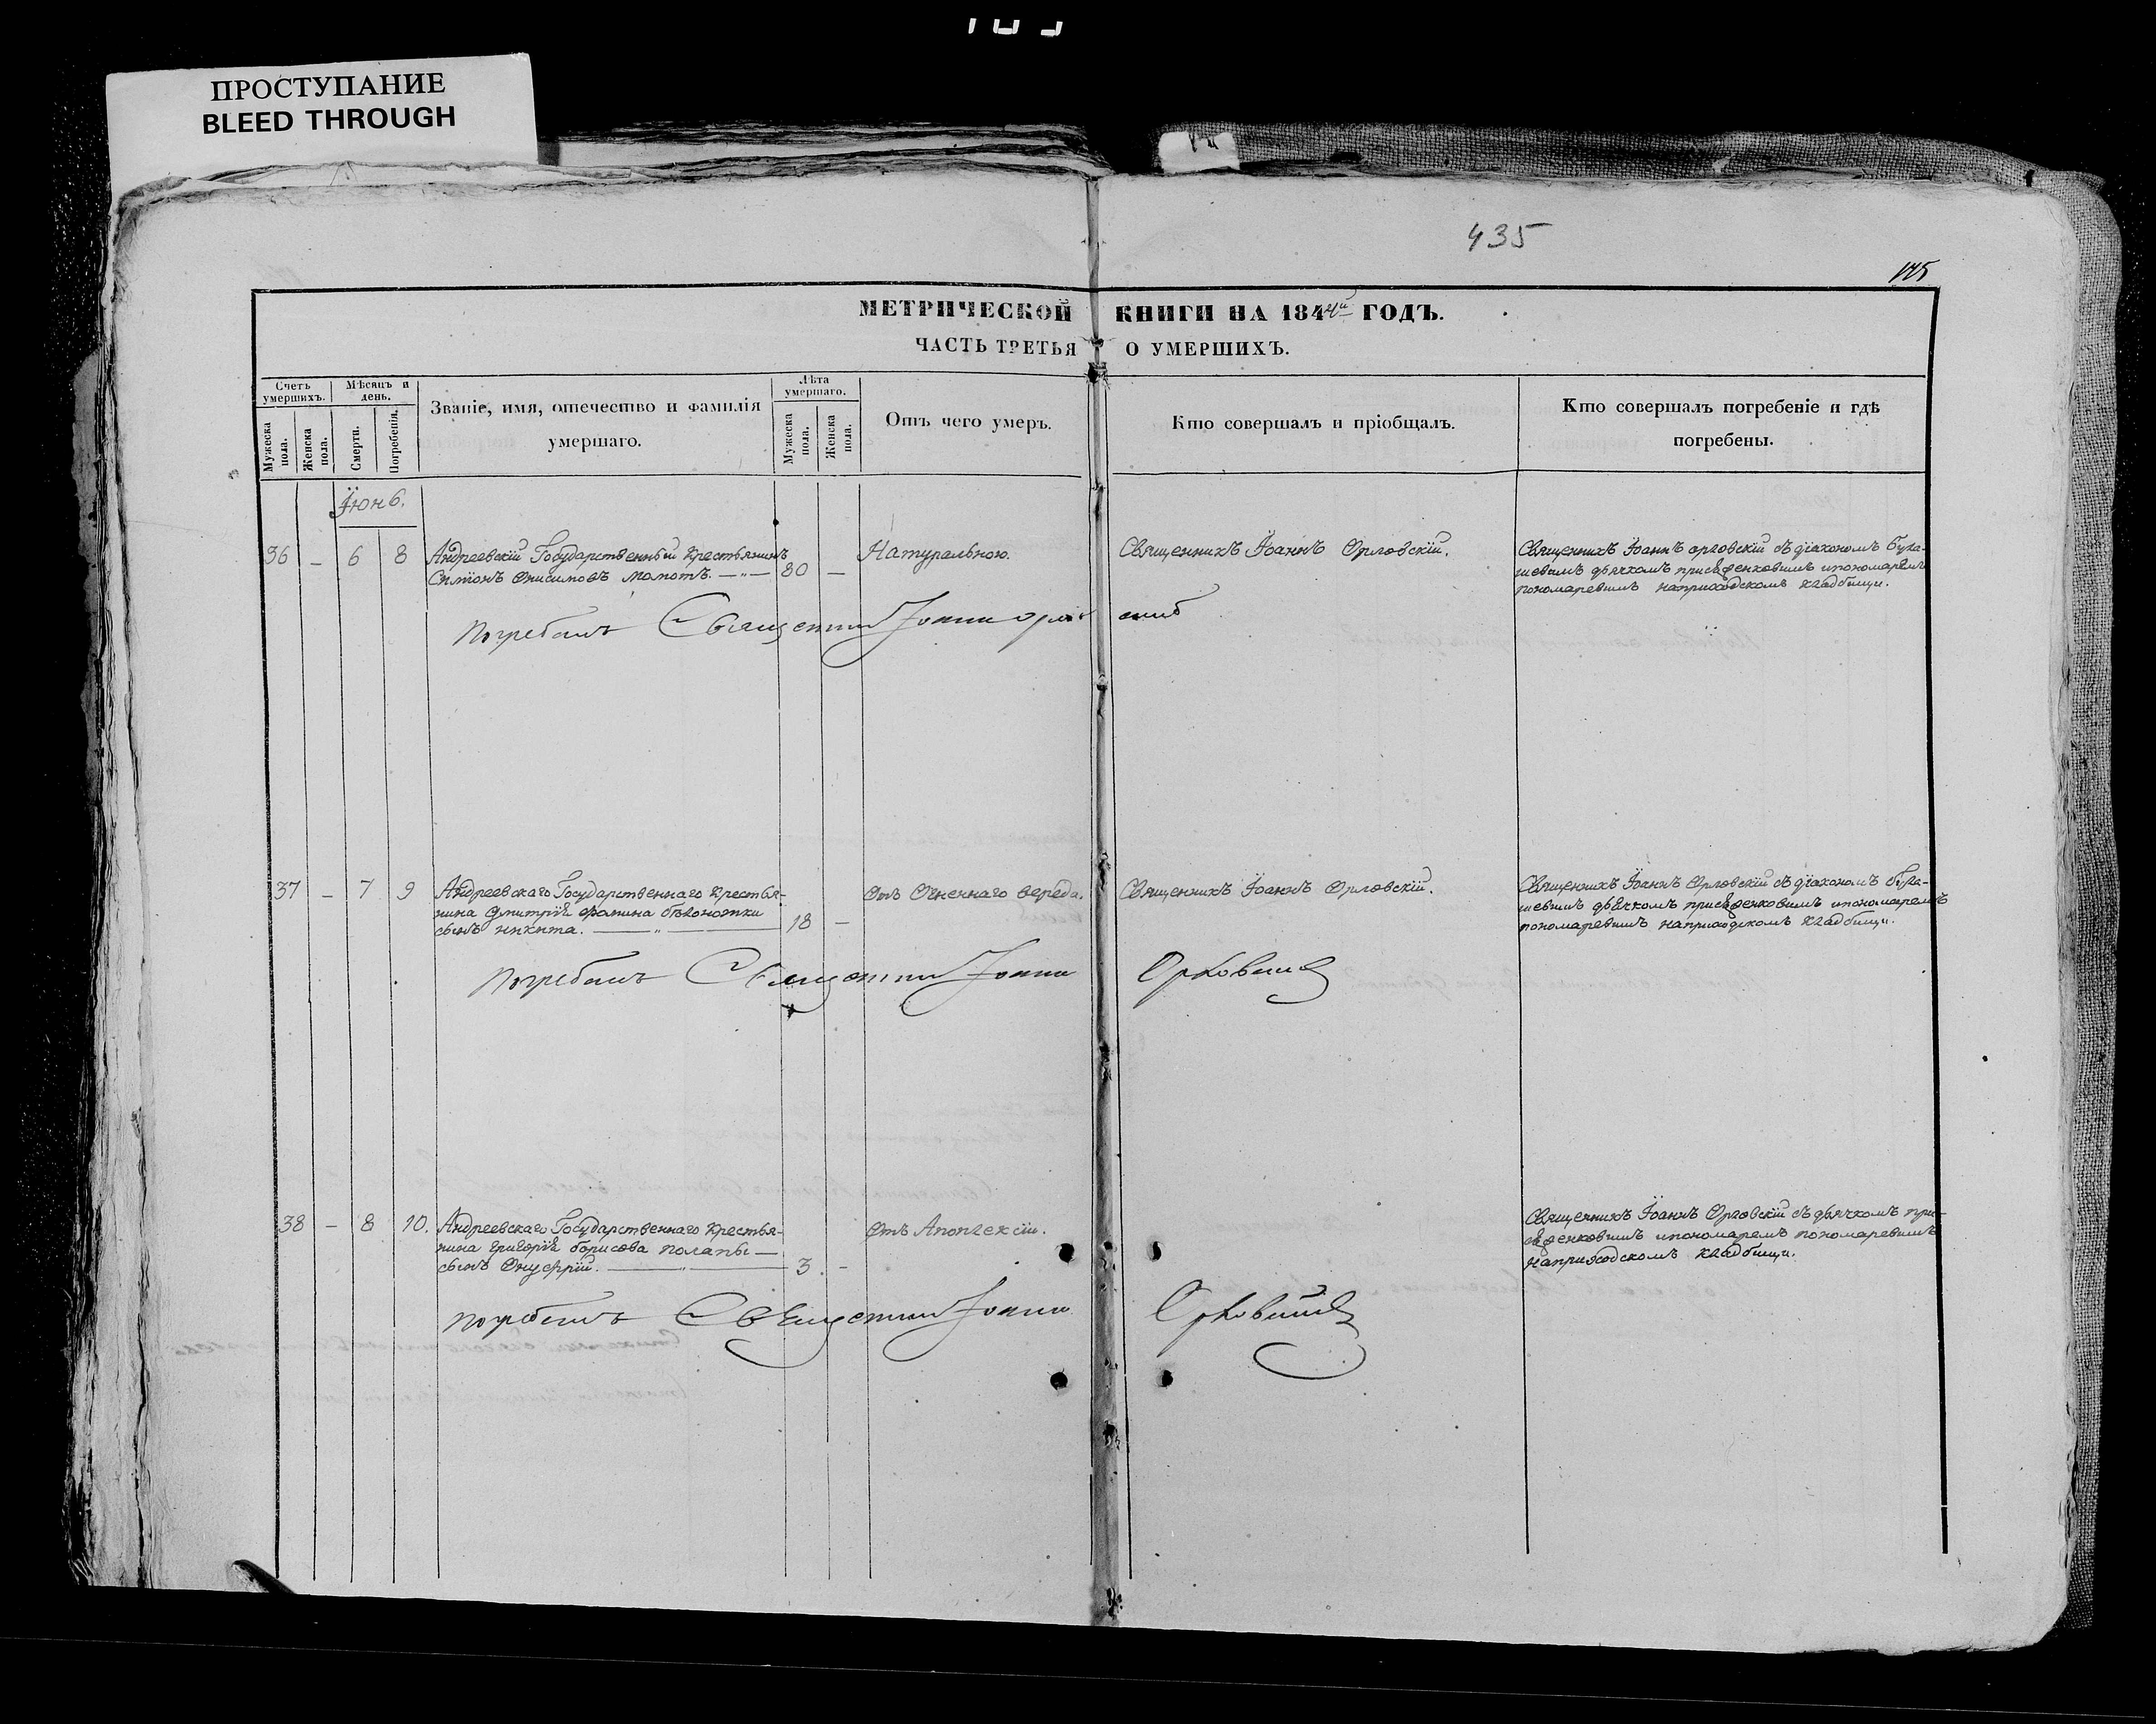 ПРОСТУПАНИЕ
BLEED THROUGH
435
МЕТРИЧЕСКОЙ КНИГИ НА 1844й ГОДЪ.
ЧАСТЬ ТРЕТЬЯ О УМЕРШИХЪ.
Счетъ умершихъ.
Мужеска пола.
Женска пола.
Мѣсяцъ и день.
Смерти.
Погребенія.
Званіе, имя, отечество и фамилія
умершаго.
Лѣта умершаго.
Мужеска пола.
Женска пола.
Отъ чего умеръ.
Кто совершалъ и пріобщалъ.
Кто совершалъ погребеніе и гдѣ
погребены.
Іюнь.
36 — 6 8 Андреевскій Государственный крестьянинъ
Онисимовъ Момотъ. — 80 —
Натуральною.
Священникъ Іоаннъ Орловскій.
Священникъ Іоаннъ орловскій съ діакономъ
дьячкомъ ипономаремъ
пономаревымъ наприходскомъ кладбищи.
Погребалъ Священникъ Іоаннъ
37 — 7 9 Андреевскаго Государственнаго крестья-
нина Дмитрія Фомина бѣлоножки
сынъ никита. — 18 —
Отъ Огненнаго вереда.
Священникъ Іоаннъ Орловскій.
Священникъ Іоаннъ Орловскій съ діакономъ
дьячкомъ ипономаремъ
пономаревымъ наприходскомъ кладбищи.
Погребалъ Священникъ Іоаннъ Орловскій
38 — 8 10. Андреевскаго Государственнаго крестья-
нина григорія борисова полапы —
сынъ Онуфрій. — 3. -
Отъ Апоплексіи.
Священникъ Іоаннъ Орловскій съ дьячкомъ
ипономаремъ пономаревымъ
наприходскомъ кладбищи.
погребалъ Священникъ Іоаннъ Орловскій